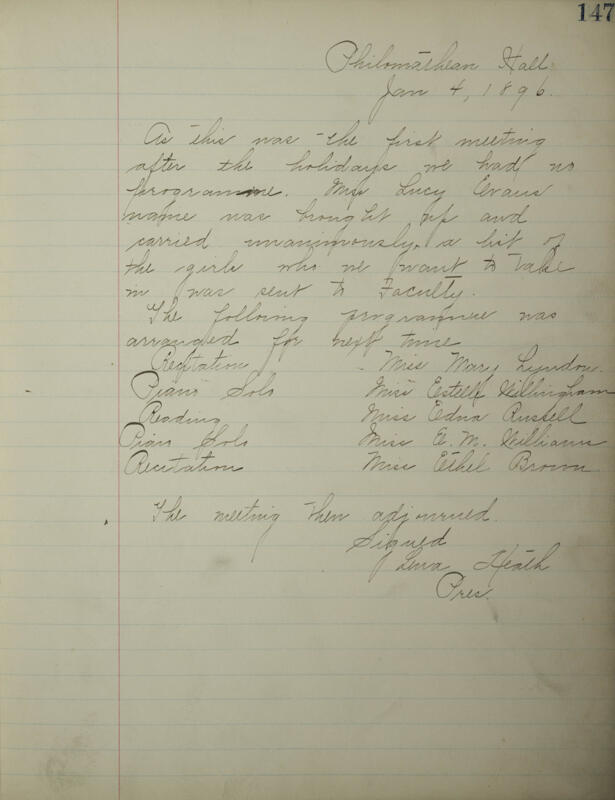 147
Philomathean Hall
Jan 4, 1896.
As this was the first meeting
after the holidays we had no
programme. Miss Lucy Evans
name was brought up and
carried unanimously. a list of
the girls who we want to take
in was sent to Faculty.
The following programme was
arranged for next time
Recitation - Miss Mary Lyndon.
Piano Solo Miss Estelle Willingham
Reading Miss Edna Russell
Piano Solo Miss E. M. Williams
Recitation Miss Ethel Brown
The meeting then adjourned.
Signed
Heath
Pres.